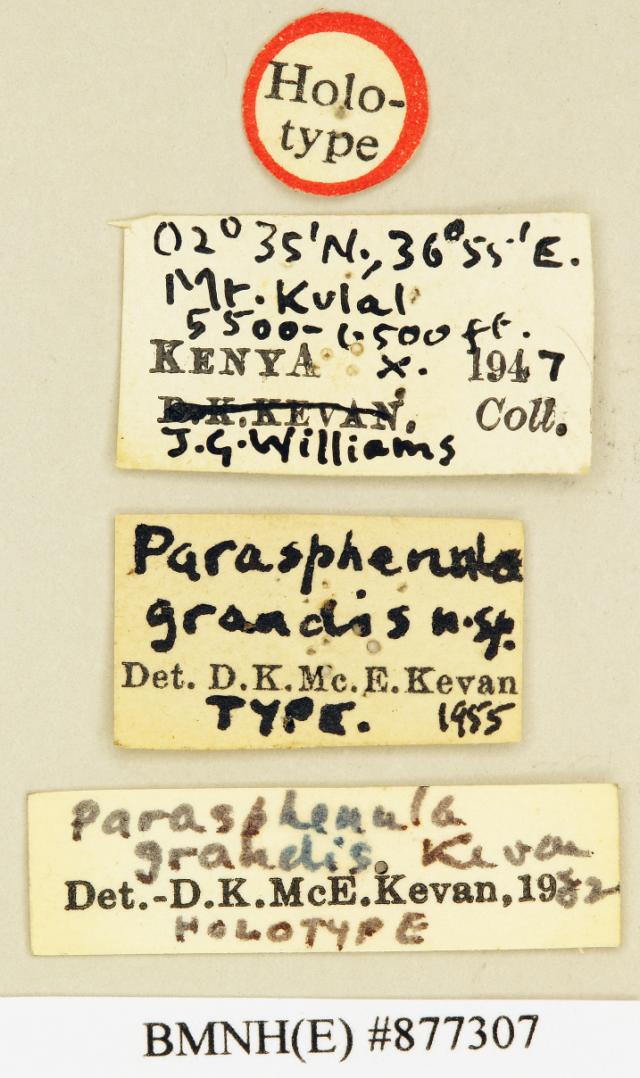 Holo-
type
02° 35' N., 36° 55' E.
Mt. Kulal
5500-6500 ft.
KENYA X. 1947
D.K.KEVAN. Coll.
J.G.Williams
Parasphenula
grandis n.sp.
Det. D.K.Mc.E.Kevan
TYPE. 1955
Parasphenula
grandis. Kevan
Det.-D.K.McE.Kevan, 1982
HOLOTYPE
BMNH(E) #877307